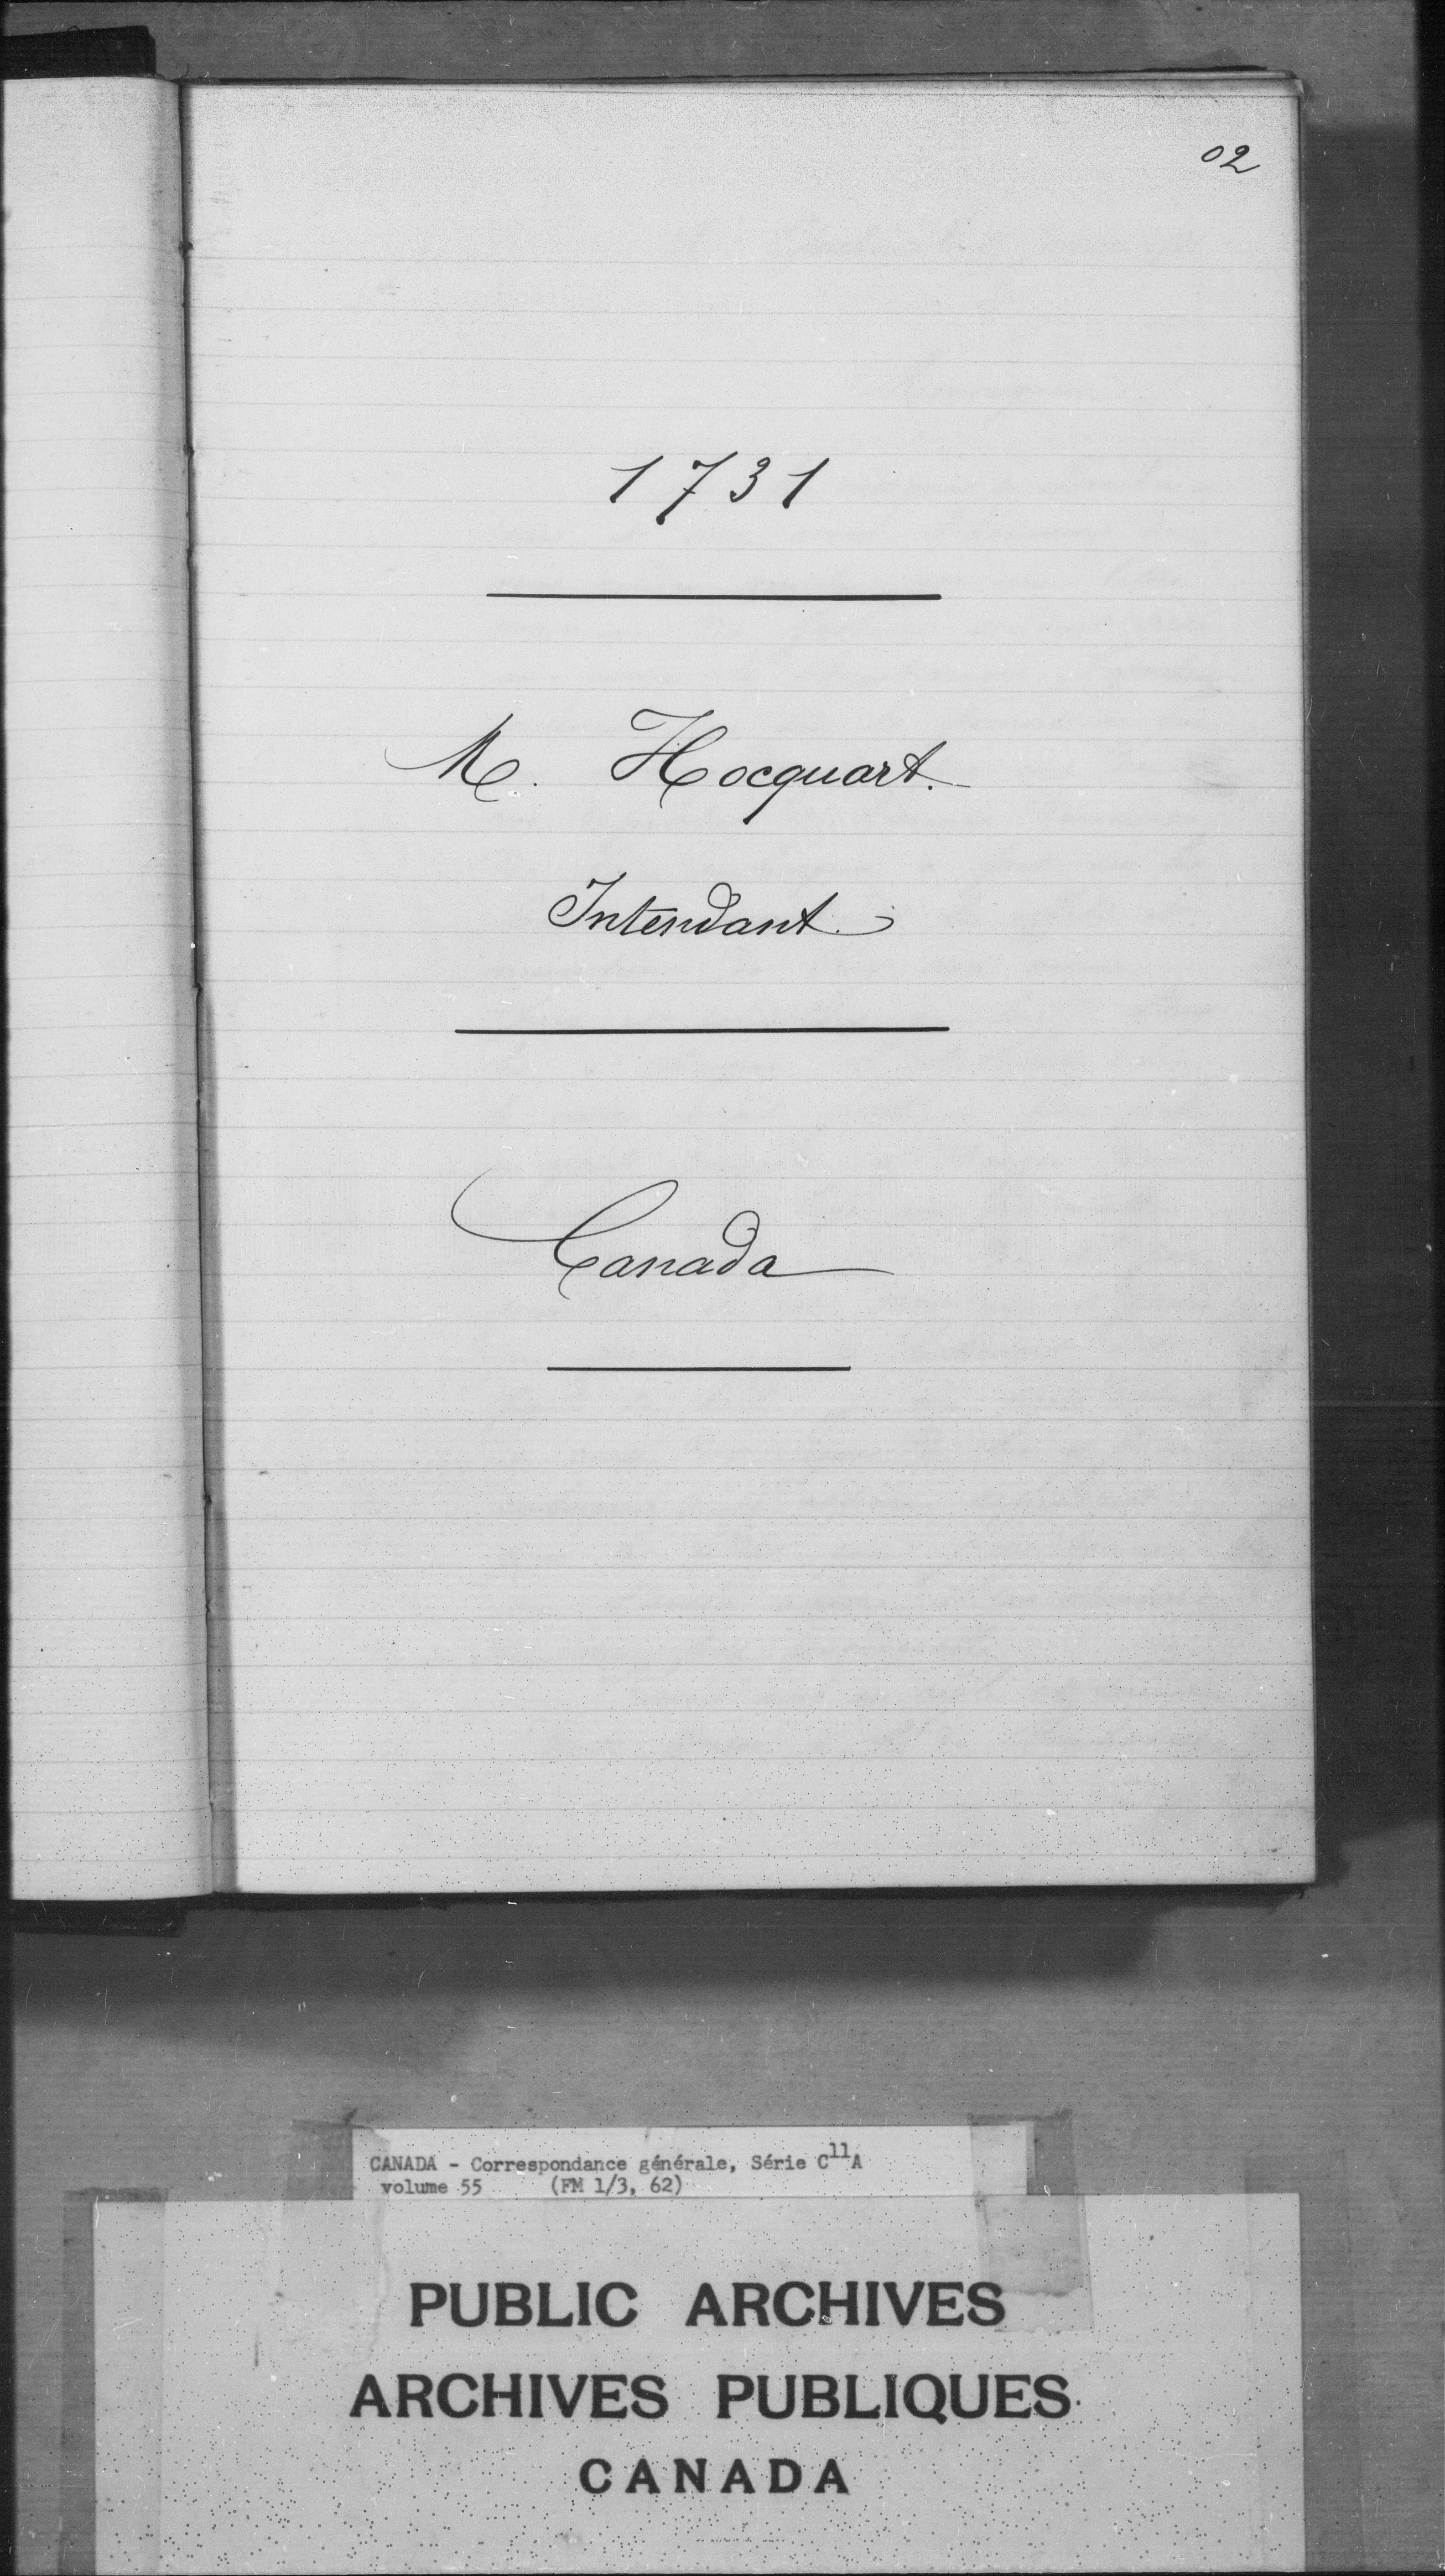 02
1731
M. Hocquart.
Intendant.
Canada
CANADA - Correspondance générale, Série C¹¹A
volume 55 (FM 1/3, 62)
PUBLIC ARCHIVES
ARCHIVES PUBLIQUES
CANADA